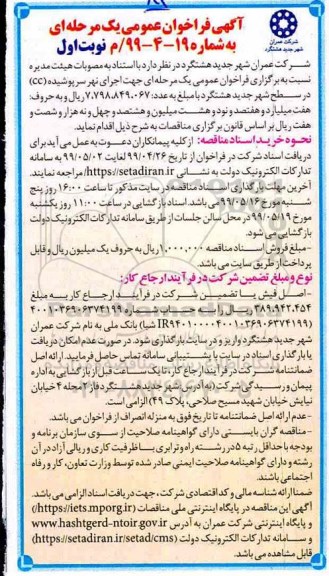 آگهی فراخوان عمومی یک مرحله ای
به شماره ۱۹-۴-۹۹/م نوبت اول
شرکت عمران
شهر جدید هشتگرد
شرکت عمران شهر جدید هشتگرد در نظر دارد با استناد به مصوبات هیئت مدیره
نسبت به برگزاری فراخوان عمومی یک مرحله ای جهت اجرای نهر سرپوشیده (cc)
در سطح شهر جدید هشتگرد با مبلغ به عدد: ۷,۷۹۸,۸۴۹,۰۶۷ ریال و به حروف:
هفت میلیارد و هفتصد و نود و هشت میلیون و هشتصد و چهل و نه هزار و شصت و
هفت ریال بر اساس قانون برگزاری مناقصات به شرح ذیل اقدام نماید.
نحوه خرید اسناد مناقصه: از کلیه پیمانکاران دعوت به عمل می آید برای
دریافت اسناد شرکت در فراخوان از تاریخ ۹۹/۰۴/۲۶ لغایت ۹۹/۰۵/۰۲ به سامانه
تدارکات الکترونیک دولت به نشانی https://setadiran.ir/ مراجعه نمایند.
آخرین مهلت بارگذاری اسناد مناقصه در سایت مذکور تا ساعت ۱۶:۰۰ روز پنج
شنبه مورخ ۹۹/۰۵/۱۶ می باشد. اسناد بازگشایی در ساعت ۱۱:۰۰ روز یکشنبه
مورخ ۹۹/۰۵/۱۹ در محل سالن جلسات از طریق سامانه تدارکات الکترونیک دولت
بازگشایی می شود.
-مبلغ فروش اسناد مناقصه ۱,۰۰۰,۰۰۰ ریال به حروف یک میلیون ریال و قابل
پرداخت از طریق سایت می باشد.
نوع و مبلغ تضمین شرکت در فرآیند ارجاع کار:
-اصل فیش یا تضمین شرکت در فرآیند ارجاع کار به مبلغ
۳۸۹,۹۴۲,۴۵۴ ریال
شبا) بانک ملی به نام شرکت عمران
شهر جدید هشتگرد واریز و در سایت بارگذاری شود. در صورت عدم امکان دریافت
یا بارگذاری اسناد در سایت با پشتیبانی سامانه تماس حاصل فرمایید. ارائه اصل
ضمانتنامه شرکت در فرآیند ارجاع کار، تا یک ساعت قبل از بازگشایی به اداره
پیمان و رسیدگی شرکت (به آدرس: شهر جدید هشتگرد فاز ۲ محله ۴ خیابان
نیایش خیابان شهید مسیح صلاحی، پلاک ۴۹) الزامی است.
-عدم ارائه اصل ضمانتنامه تا تاریخ فوق به منزله انصراف از فراخوان می باشد.
-مناقصه گران بایستی دارای گواهینامه صلاحیت از سوی سازمان برنامه و
بودجه با حداقل رتبه ۵ در رشته راه و ترابری با ظرفیت کاری و ریالی آزاد در آن
رشته و دارای گواهینامه صلاحیت ایمنی صادر شده توسط وزارت تعاون، کار و رفاه
اجتماعی باشند.
ضمنا ارائه شناسه ملی و کد اقتصادی شرکت، جهت دریافت اسناد الزامی می باشد.
آگهی این مناقصه در پایگاه اینترنتی ملی مناقصات (https://iets.mporg.ir/)
و پایگاه اینترنتی شرکت عمران به آدرس www.hashtgerd-ntoir.gov.ir
و سامانه تدارکات الکترونیک دولت (https://setadiran.ir/setad/cms)
قابل مشاهده می باشد.